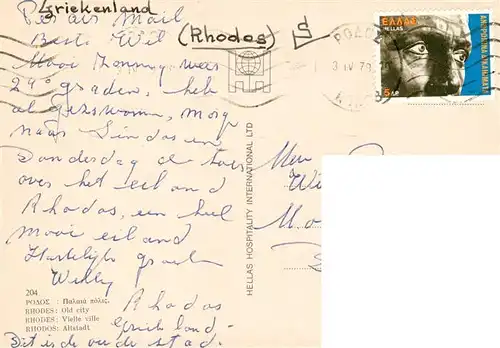 Griekenland
Per air Mail
(Rhodos)
Beste Wil
Mooi zonnig weer
29 graden, heb
al gezwommen, morg
naar Lindos en
Donderdag de toer
over het eiland
Rhodos, een heel
mooi eiland
Hartelijke groeten
Willy
Rhodos
Griekland
Dit is de oude stad.
204
ΡΟΔΟΣ : Παλαιά πόλις.
RHODES: Old city
RHODES: Vielle ville
RHODOS: Altstadt
HELLAS HOSPITALITY INTERNATIONAL LTD
ΕΛΛΑΣ
HELLAS
5